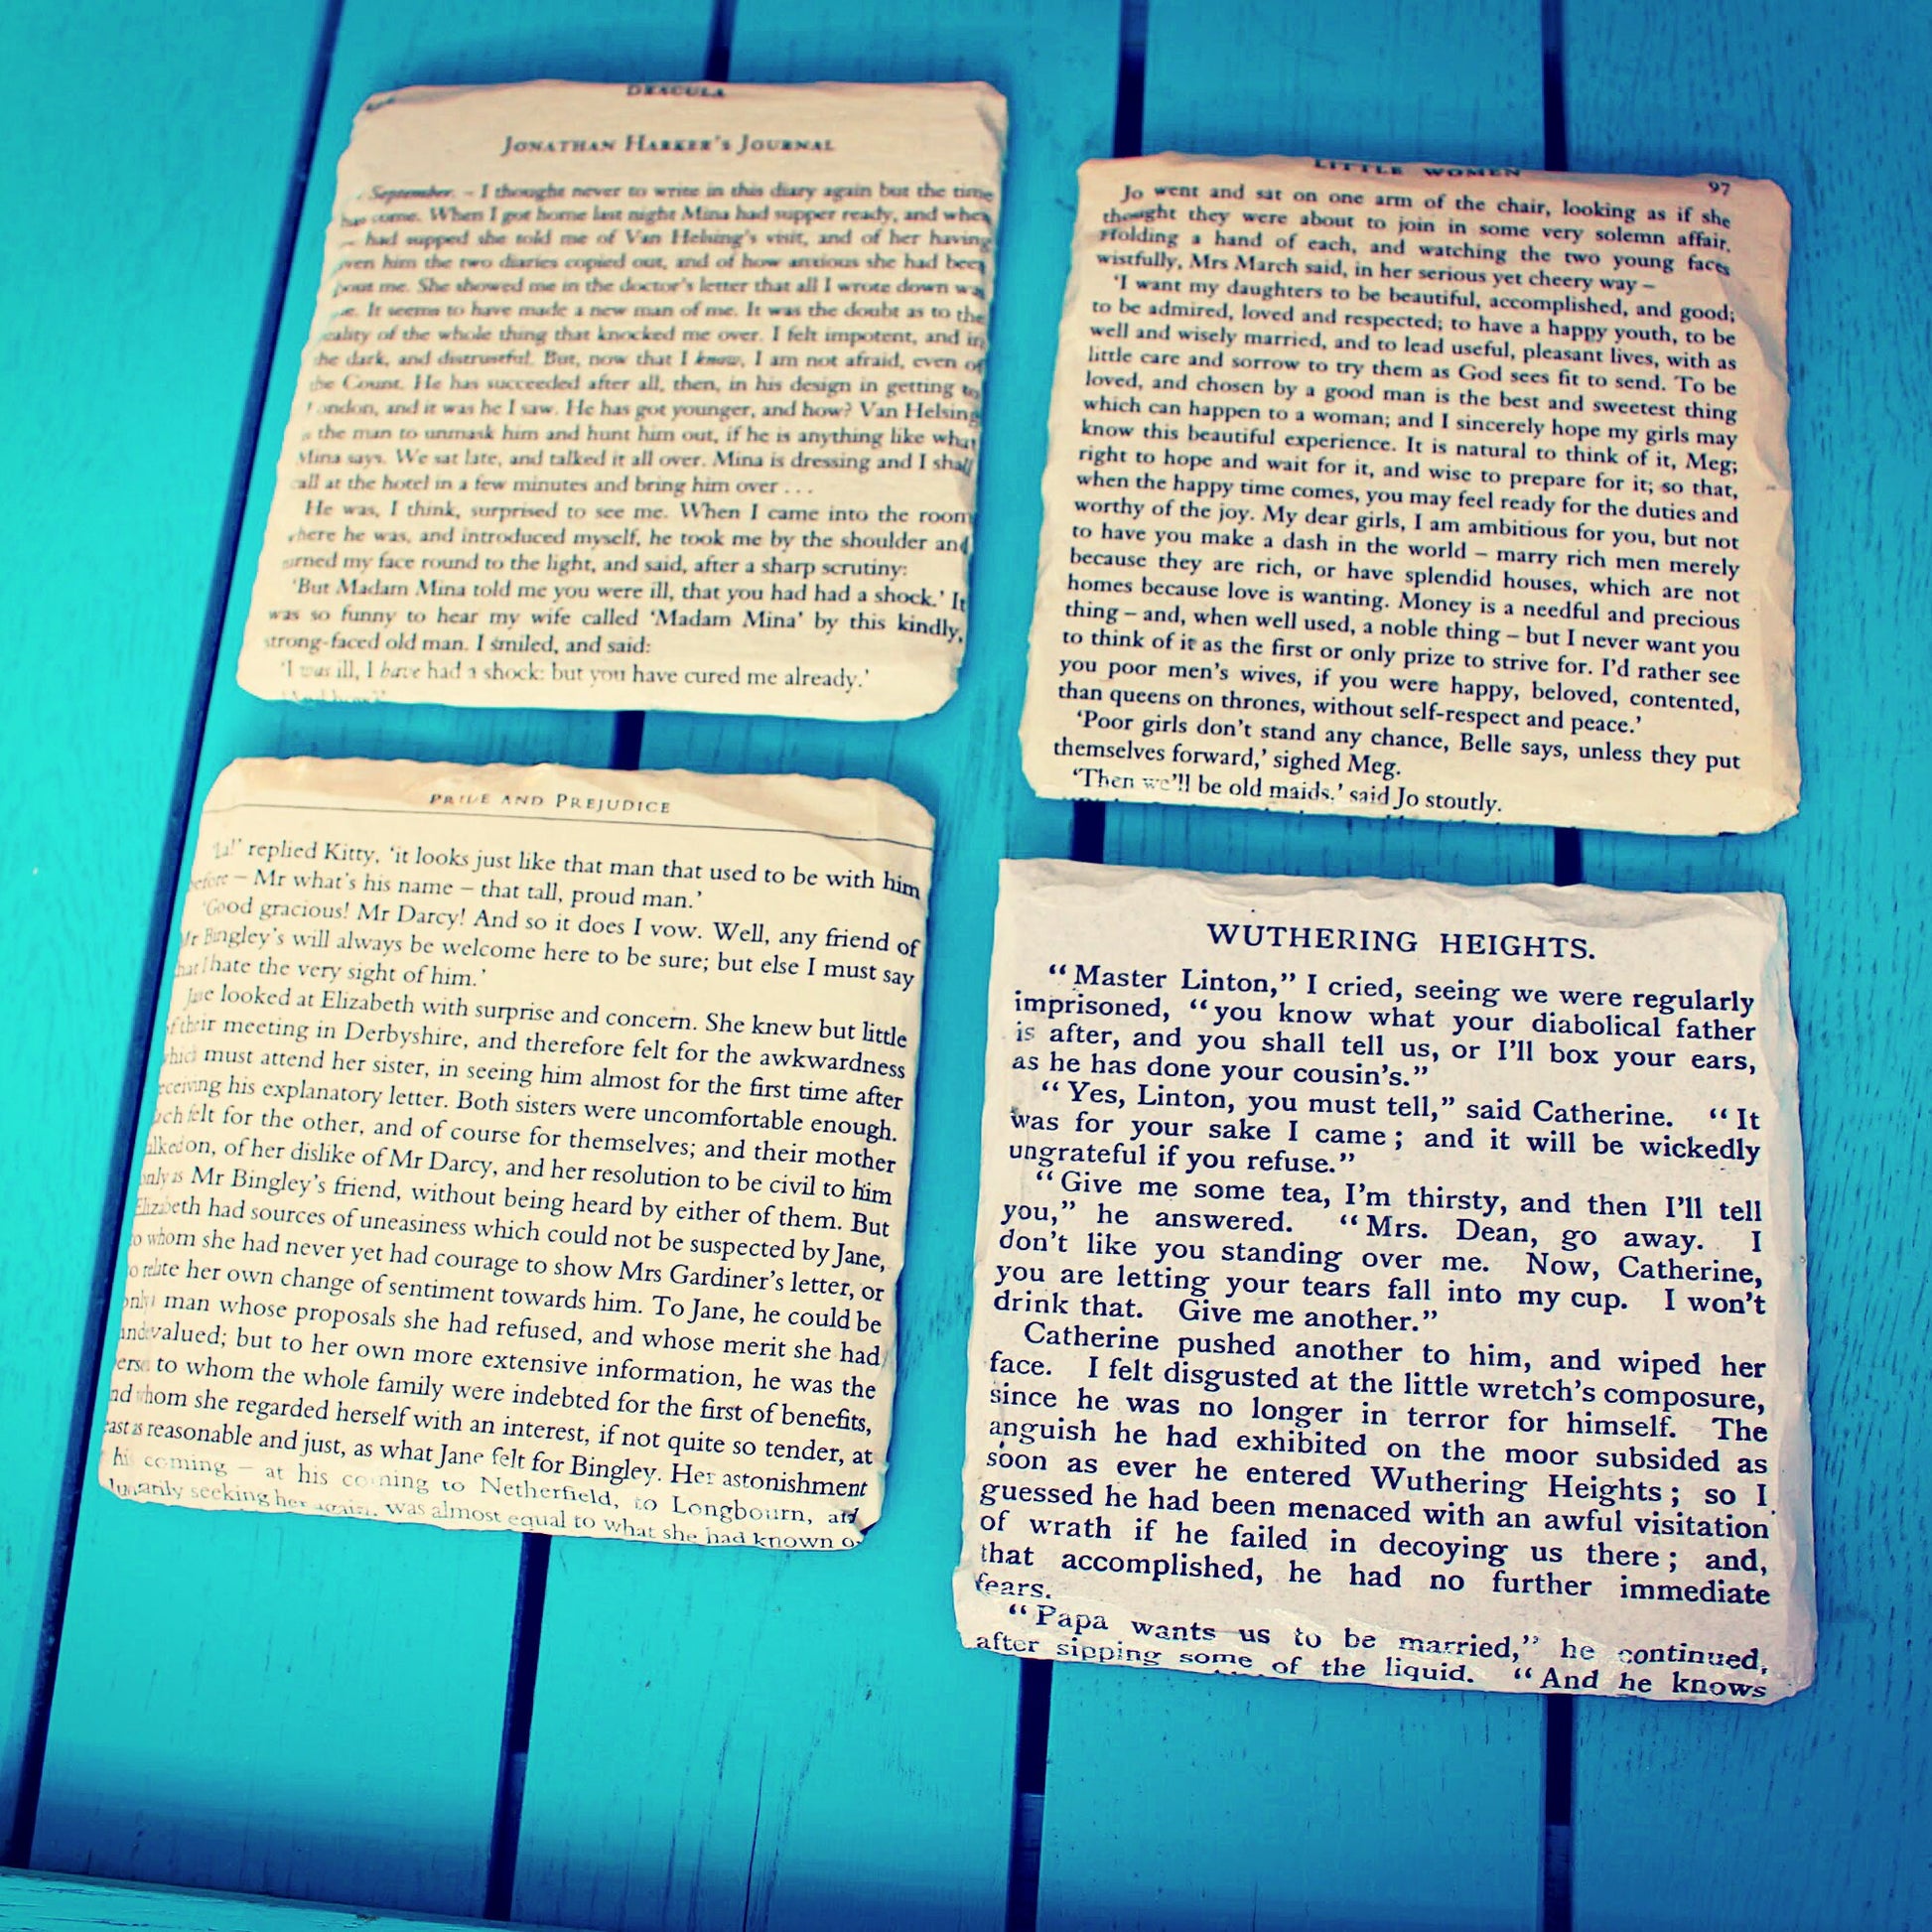 DRACULA
JONATHAN HARKER'S JOURNAL
September. – I thought never to write in this diary again but the time
has come. When I got home last night Mina had supper ready, and when
had supped she told me of Van Helsing's visit, and of her having
ven him the two diaries copied out, and of how anxious she had been
bout me. She showed me in the doctor's letter that all I wrote down wa
e. It seems to have made a new man of me. It was the doubt as to the
eality of the whole thing that knocked me over. I felt impotent, and in
he dark, and distrustful. But, now that I know, I am not afraid, even of
he Count. He has succeeded after all, then, in his design in getting to
London, and it was he I saw. He has got younger, and how? Van Helsing
the man to unmask him and hunt him out, if he is anything like what
Mina says. We sat late, and talked it all over. Mina is dressing and I shall
all at the hotel in a few minutes and bring him over . . .
He was, I think, surprised to see me. When I came into the room
here he was, and introduced myself, he took me by the shoulder and
urned my face round to the light, and said, after a sharp scrutiny:
'But Madam Mina told me you were ill, that you had had a shock.' It
was so funny to hear my wife called 'Madam Mina' by this kindly,
strong-faced old man. I smiled, and said:
'I was ill, I have had a shock: but you have cured me already.'
LITTLE WOMEN 97
Jo went and sat on one arm of the chair, looking as if she
thought they were about to join in some very solemn affair.
Holding a hand of each, and watching the two young faces
wistfully, Mrs March said, in her serious yet cheery way –
'I want my daughters to be beautiful, accomplished, and good;
to be admired, loved and respected; to have a happy youth, to be
well and wisely married, and to lead useful, pleasant lives, with as
little care and sorrow to try them as God sees fit to send. To be
loved, and chosen by a good man is the best and sweetest thing
which can happen to a woman; and I sincerely hope my girls may
know this beautiful experience. It is natural to think of it, Meg;
right to hope and wait for it, and wise to prepare for it; so that,
when the happy time comes, you may feel ready for the duties and
worthy of the joy. My dear girls, I am ambitious for you, but not
to have you make a dash in the world – marry rich men merely
because they are rich, or have splendid houses, which are not
homes because love is wanting. Money is a needful and precious
thing – and, when well used, a noble thing – but I never want you
to think of it as the first or only prize to strive for. I'd rather see
you poor men's wives, if you were happy, beloved, contented,
than queens on thrones, without self-respect and peace.'
'Poor girls don't stand any chance, Belle says, unless they put
themselves forward,' sighed Meg.
'Then we'll be old maids,' said Jo stoutly.
PRIDE AND PREJUDICE
'La!' replied Kitty, 'it looks just like that man that used to be with him
before – Mr what's his name – that tall, proud man.'
'Good gracious! Mr Darcy! And so it does I vow. Well, any friend of
Mr Bingley's will always be welcome here to be sure; but else I must say
hat I hate the very sight of him.'
Jane looked at Elizabeth with surprise and concern. She knew but little
of their meeting in Derbyshire, and therefore felt for the awkwardness
which must attend her sister, in seeing him almost for the first time after
eceiving his explanatory letter. Both sisters were uncomfortable enough.
ach felt for the other, and of course for themselves; and their mother
alked on, of her dislike of Mr Darcy, and her resolution to be civil to him
only as Mr Bingley's friend, without being heard by either of them. But
Elizabeth had sources of uneasiness which could not be suspected by Jane,
o whom she had never yet had courage to show Mrs Gardiner's letter, or
o relate her own change of sentiment towards him. To Jane, he could be
only a man whose proposals she had refused, and whose merit she had
undervalued; but to her own more extensive information, he was the
erson to whom the whole family were indebted for the first of benefits,
nd whom she regarded herself with an interest, if not quite so tender, at
east as reasonable and just, as what Jane felt for Bingley. Her astonishment
his coming – at his coming to Netherfield, to Longbourn, and
luntarily seeking her again, was almost equal to what she had known o
WUTHERING HEIGHTS.
"Master Linton," I cried, seeing we were regularly
imprisoned, "you know what your diabolical father
is after, and you shall tell us, or I'll box your ears,
as he has done your cousin's."
"Yes, Linton, you must tell," said Catherine. "It
was for your sake I came; and it will be wickedly
ungrateful if you refuse."
"Give me some tea, I'm thirsty, and then I'll tell
you," he answered. "Mrs. Dean, go away. I
don't like you standing over me. Now, Catherine,
you are letting your tears fall into my cup. I won't
drink that. Give me another."
Catherine pushed another to him, and wiped her
face. I felt disgusted at the little wretch's composure,
since he was no longer in terror for himself. The
anguish he had exhibited on the moor subsided as
soon as ever he entered Wuthering Heights; so I
guessed he had been menaced with an awful visitation
of wrath if he failed in decoying us there; and,
that accomplished, he had no further immediate
fears.
"Papa wants us to be married," he continued,
after sipping some of the liquid. "And he knows